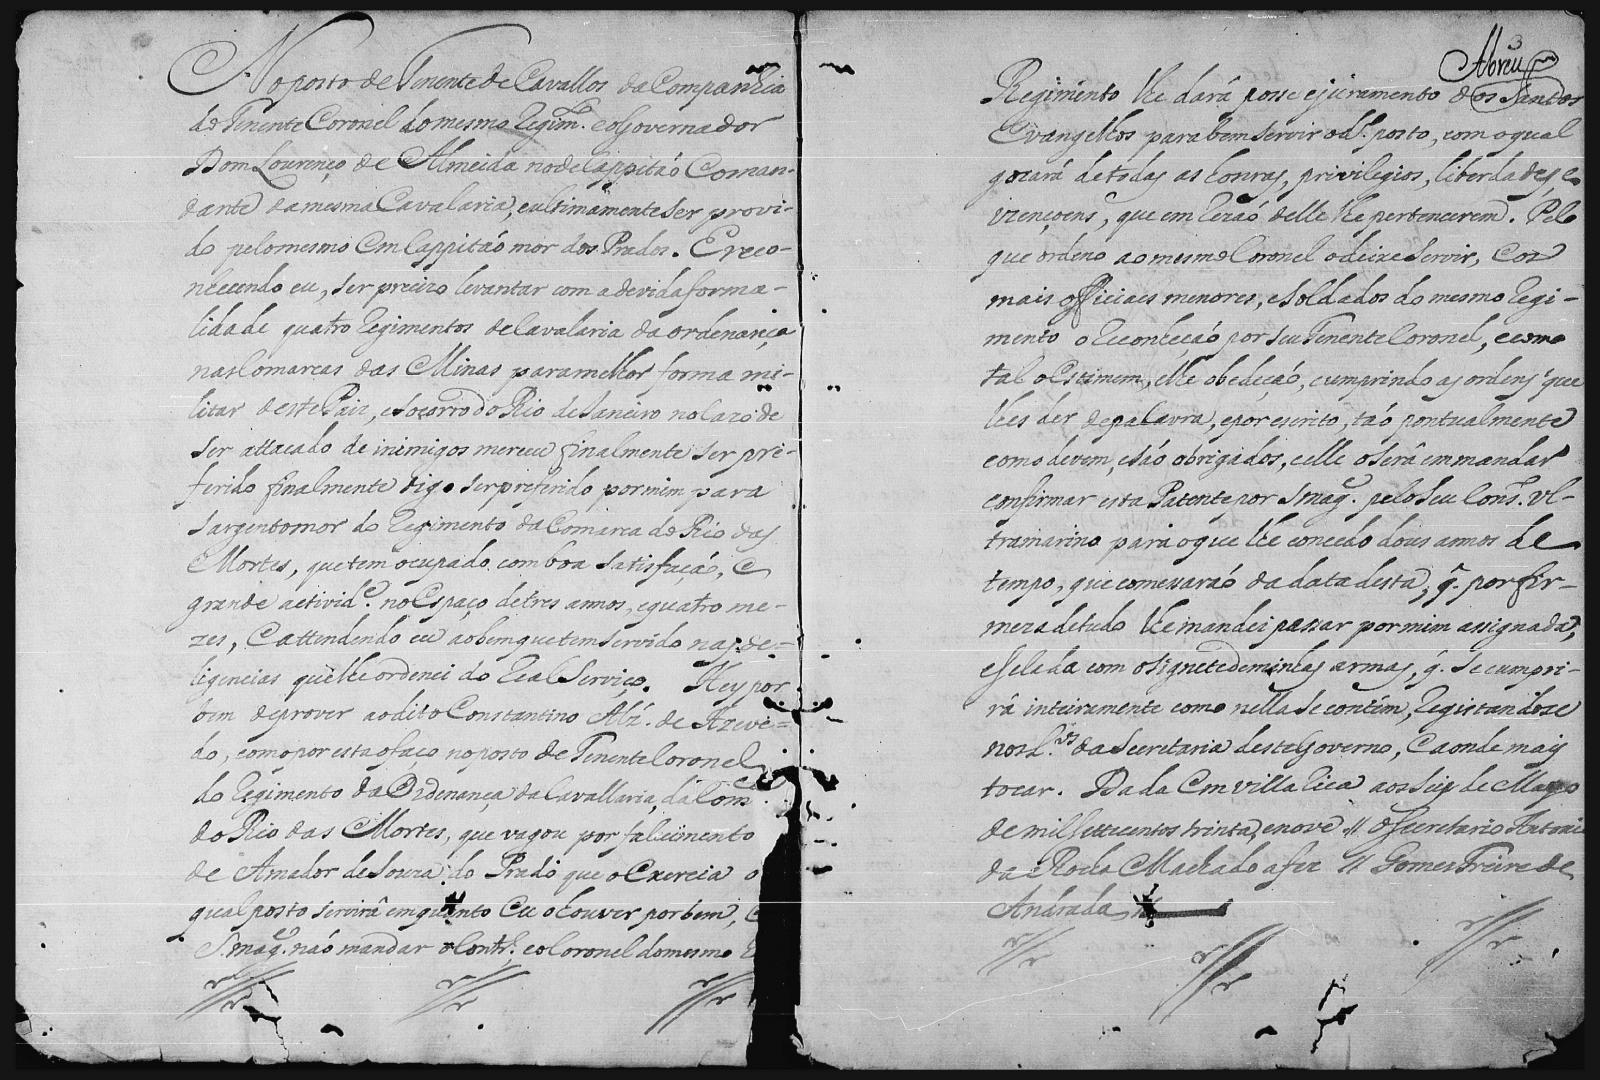 No posto de Tenente de Cavallos da Companhia
do Tenente Coronel do mesmo Regim.to e o Governador
Dom Lourenço de Almeida no de Cappitaõ Coman-
dante da mesma Cavalaria, e ultimamente ser provi-
do pelo mesmo em Cappitaõ mor dos Prados. E reco-
nhecendo eu, ser precizo levantar com a devida forma-
lidade quatro Regimentos de Cavalaria da ordenança
nas Comarcas das Minas para melhor forma mi-
litar deste Paiz, e socorro do Rio de Janeiro no cazo de
ser attacado de inimigos mereceu finalmente ser pre-
ferido finalmente digo ser preferido por mim para
Sargento mor do Regimento da Comarca do Rio das
Mortes, que tem ocupado com boa satisfaçaõ, e
grande activid.e no espaço de tres annos, e quatro me-
zes, e attendendo eu ao bem que tem servido nas de-
ligencias que lhe ordenei do Real Serviço. Hey por
bem de prover ao dito Constantino Alz̃. de Azeve-
do, como por esta o faço no posto de Tenente Coronel
do Regimento da Ordenança da Cavallaria da Com.ca
do Rio das Mortes, que vagou por falecimento
de Amador de Souza do Prado que o exercia o
qual posto servirá emquanto eu o houver por bem, e
S. Mag.e naõ mandar o Contr.o, e o Coronel do mesmo
Abreu
Regimento lhe dará posse e juramento dos Santos
Evangelhos para bem servir o d.o posto, com o qual
gozará de todas as honras, privilegios, liberdades, e
izençoens, que em rezaõ delle lhe pertencerem. Pelo
que ordeno ao mesmo Coronel o deixe servir, e os
mais officiaes menores, e soldados do mesmo Regi-
mento o reconheçaõ por seu Tenente Coronel, e como
tal o estimem, e lhe obedeçaõ, e cumprindo as ordens que
lhes der de palavra, e por escrito, taõ pontualmente
como devem, e saõ obrigados, e elle o será em mandar
confirmar esta Patente por S. Mag.e pelo seu Cons.o Ul-
tramarino para o que lhe concedo dous annos de
tempo, que comesaraõ da data desta, q̃. por fir-
meza de tudo lhe mandei passar por mim assignada,
e selada com o signete de minhas armas, q̃. se cumpri-
rá inteiramente como nella se contém, registandose
nos L.os da Secretaria deste Governo, e aonde mais
tocar. Dada em Villa Rica aos seis de Mayo
de mil settecentos trinta e nove // O Secretario Antonio
da Rocha Machado a fez // Gomes Freire de
Andrada